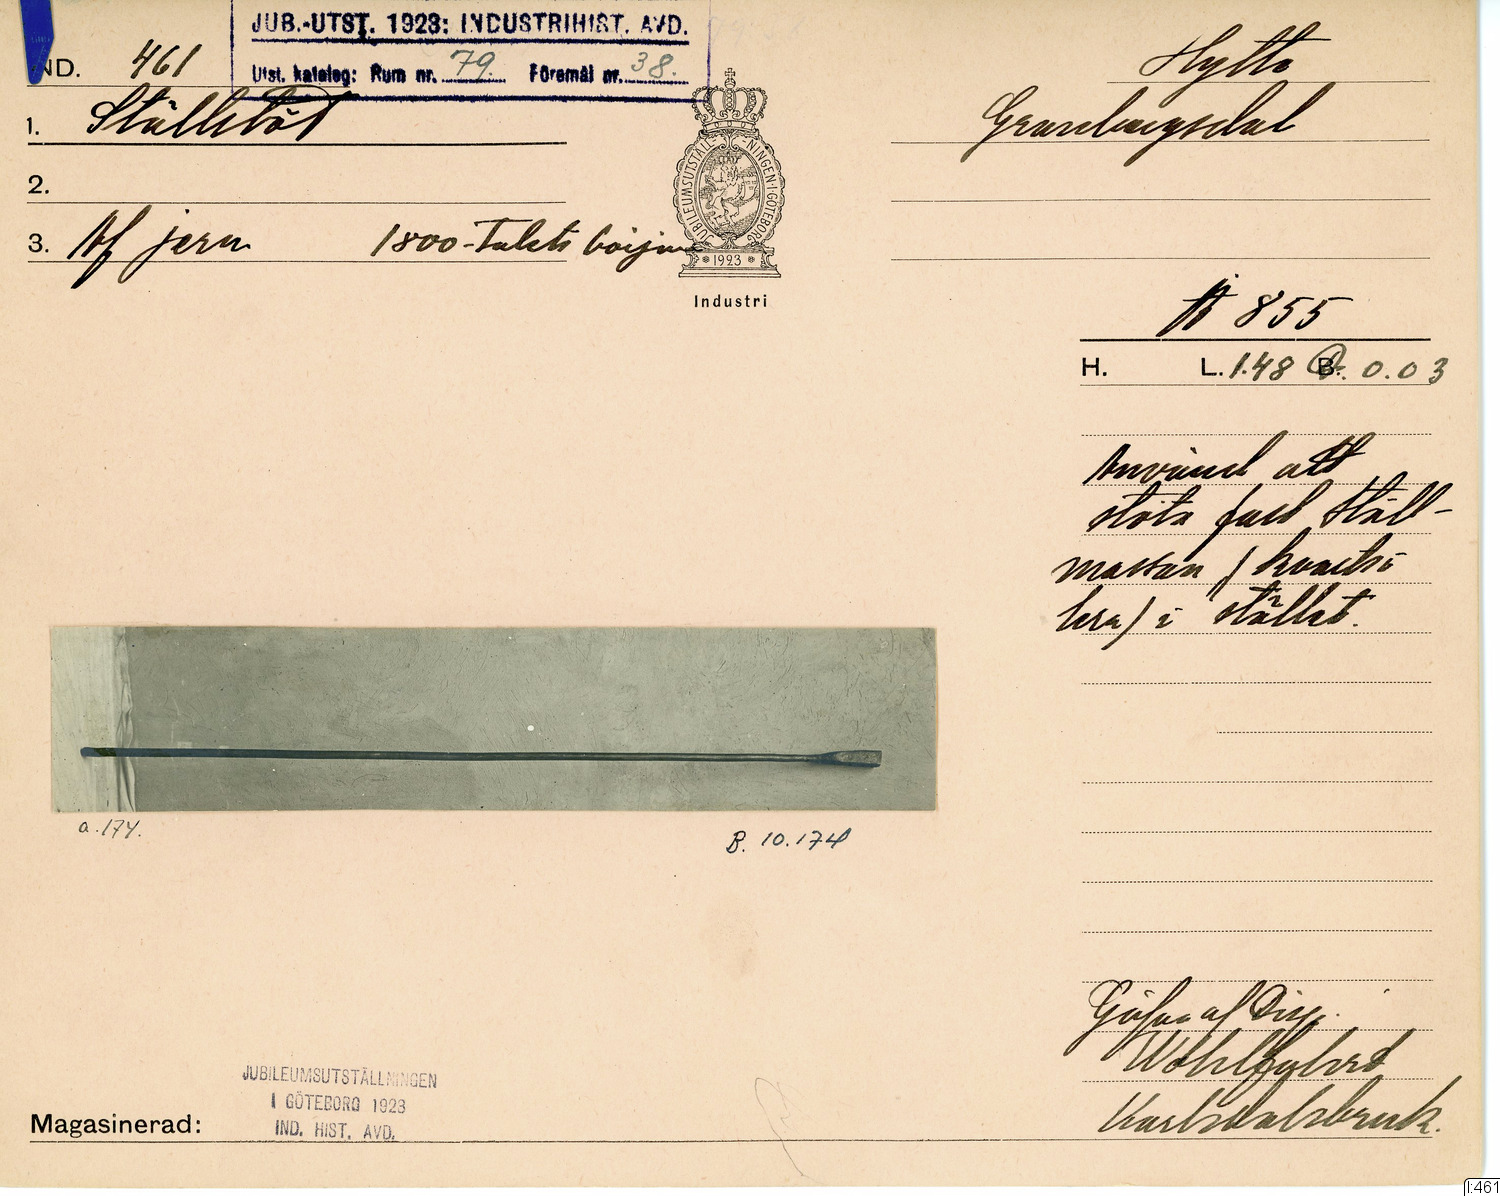 JUB.-UTST. 1923: INDUSTRIHIST. AVD.
Utst. katalog: Rum nr. 79. Föremål nr. 38.
IND. 461
Hytte
1. Ställstöt
Granbergsdal
2.
3. Af jern 1800-Talets början
JUBILEUMSUTSTÄLLNINGEN I GÖTEBORG
* 1923 *
Industri
A 855
H. L. 1.48 B. 0.03
Använd att
stöta fast ställ-
massan (kvarts o
lera) i stället.
a. 174.
B. 10.174
Gåfva af Disp.
Karlsdalsbruk.
JUBILEUMSUTSTÄLLNINGEN
I GÖTEBORG 1923
IND. HIST. AVD.
Magasinerad:
I:461